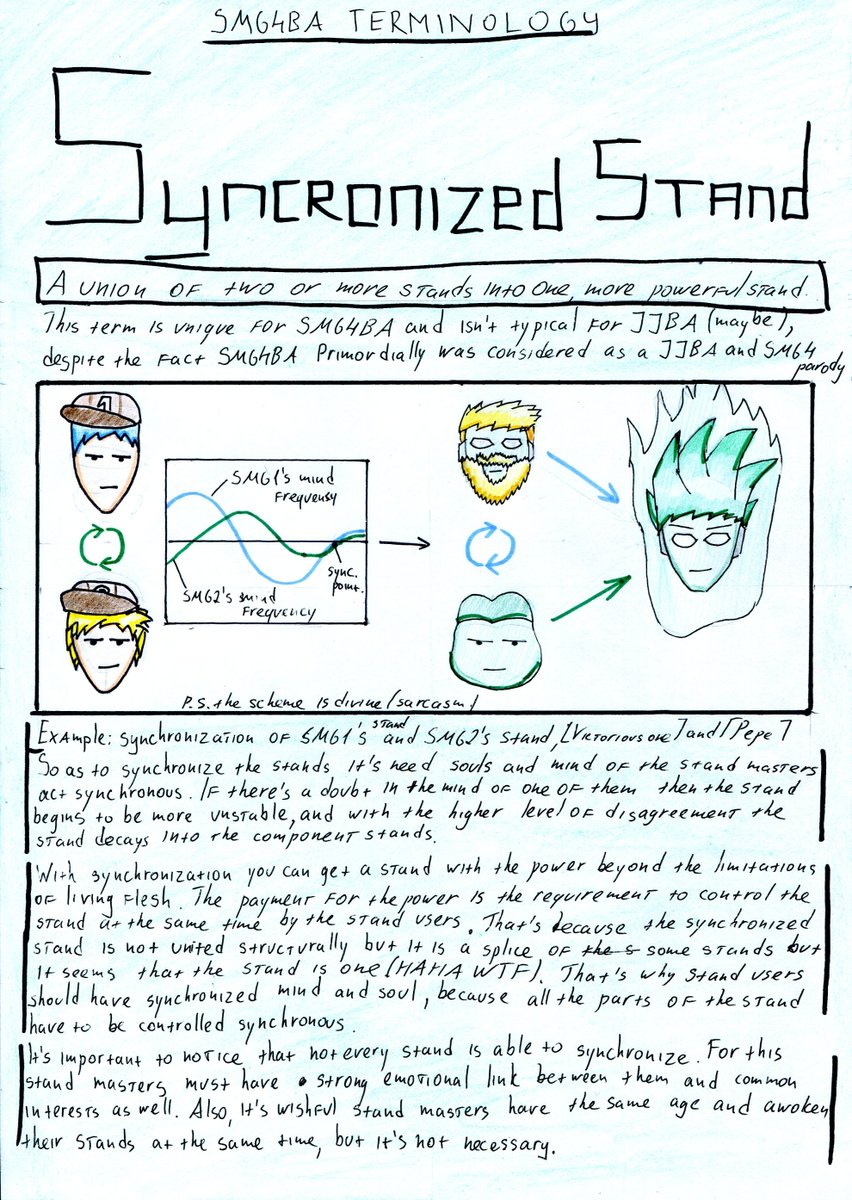 SMG4BA TERMINOLOGY
Syncronized Stand
A union of two or more stands into one, more powerful stand.
This term is unique for SMG4BA and isn't typical for JJBA (maybe),
despite the fact SMG4BA Primordially was considered as a JJBA and SM64
parody
1
SMG1's mind
Frequensy
SMG2's mind
Frequency
sync.
point.
P.S. the scheme is divine (sarcasm)
Example: synchronization of SMG1's stand and SMG2's stand, [Victorious one] and [Pepe]
So as to synchronize the stands it's need souls and mind of the stand masters
act synchronous. If there's a doubt in the mind of one of them then the stand
begins to be more unstable, and with the higher level of disagreement the
stand decays into the component stands.
With synchronization you can get a stand with the power beyond the limitations
of living flesh. The payment for the power is the requirement to control the
stand at the same time by the stand users. That's because the synchronized
stand is not united structurally but it is a splice of the s some stands but
it seems that the stand is one (HAHA WTF). That's why stand users
should have synchronized mind and soul, because all the parts of the stand
have to be controlled synchronous.
It's important to notice that not every stand is able to synchronize. For this
stand masters must have strong emotional link between them and common
interests as well. Also, it's wishful stand masters have the same age and awoken
their stands at the same time, but it's not necessary.